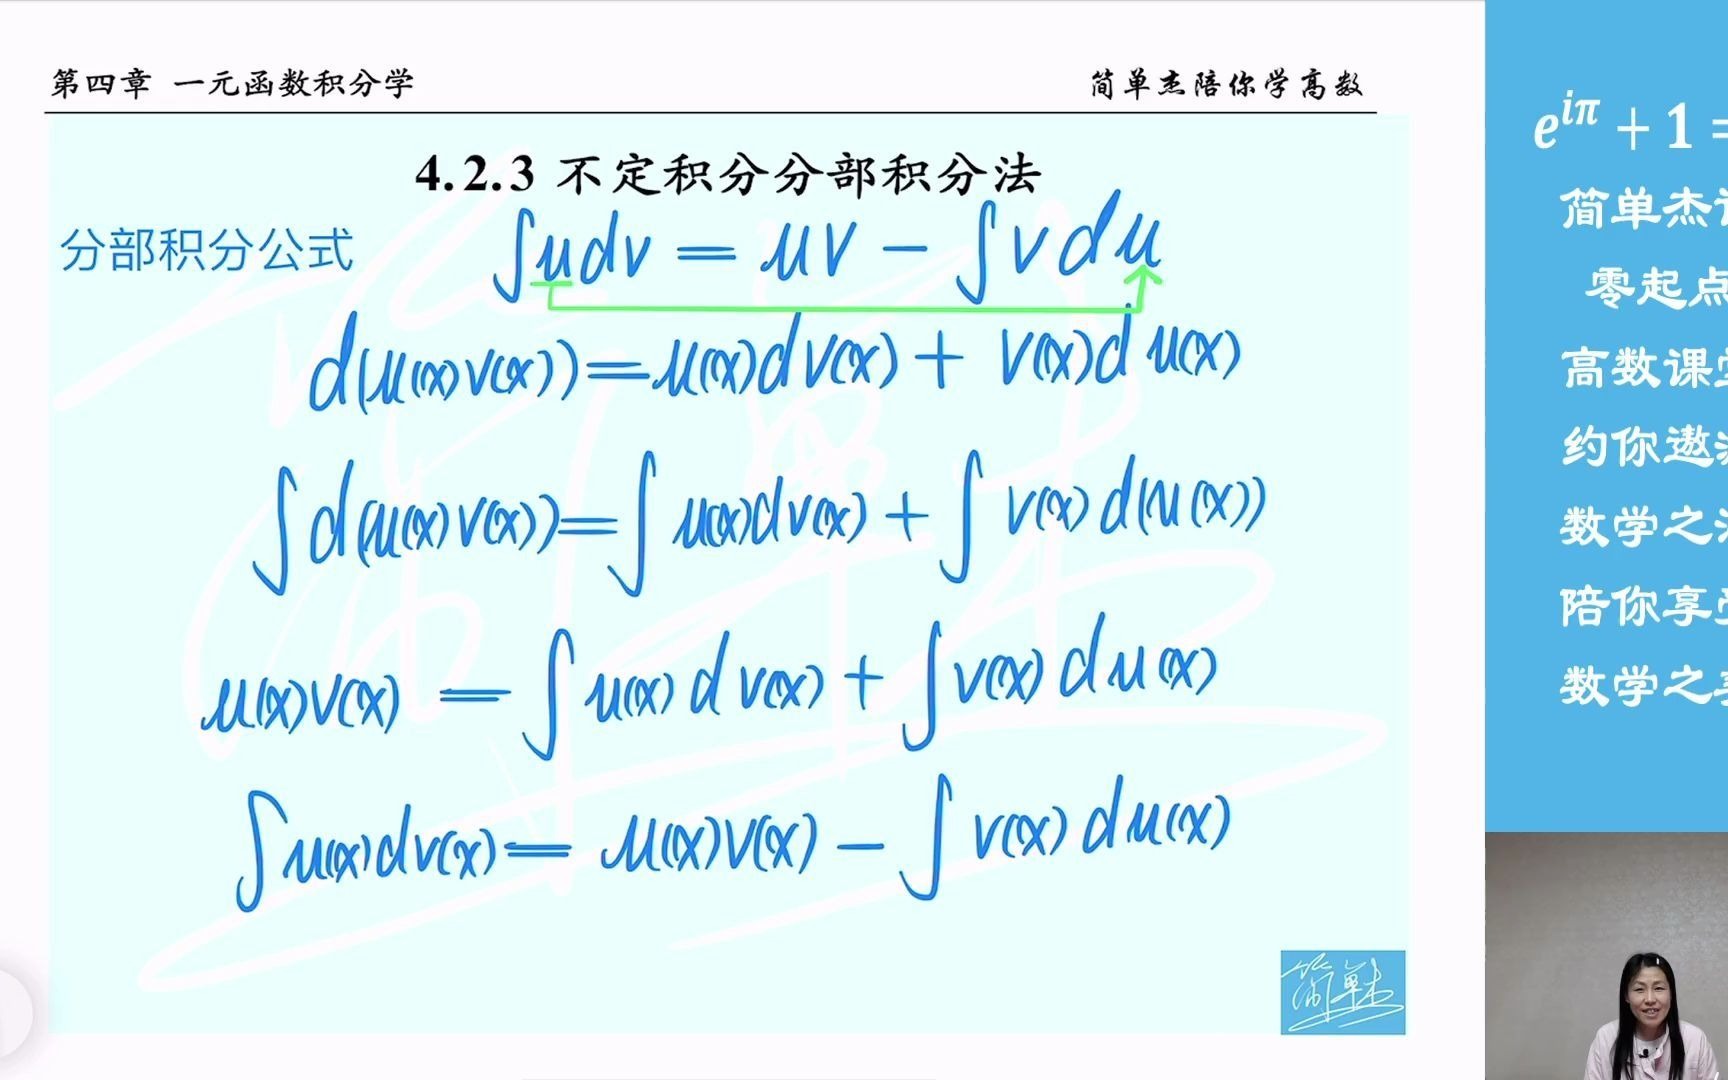 第四章 一元函数积分学
简单杰陪你学高数
4.2.3 不定积分分部积分法
分部积分公式
∫udv = uv - ∫vdu
d(u(x)v(x))=u(x)dv(x)+ v(x)du(x)
∫d(u(x)v(x))=∫u(x)dv(x)+∫v(x)d(u(x))
u(x)v(x) =∫u(x)dv(x)+∫v(x)du(x)
∫u(x)dv(x)= u(x)v(x)-∫v(x)du(x)
简单杰
e^{iπ} + 1 =
简单杰
零起点
高数课
约你遨
数学之
陪你享
数学之